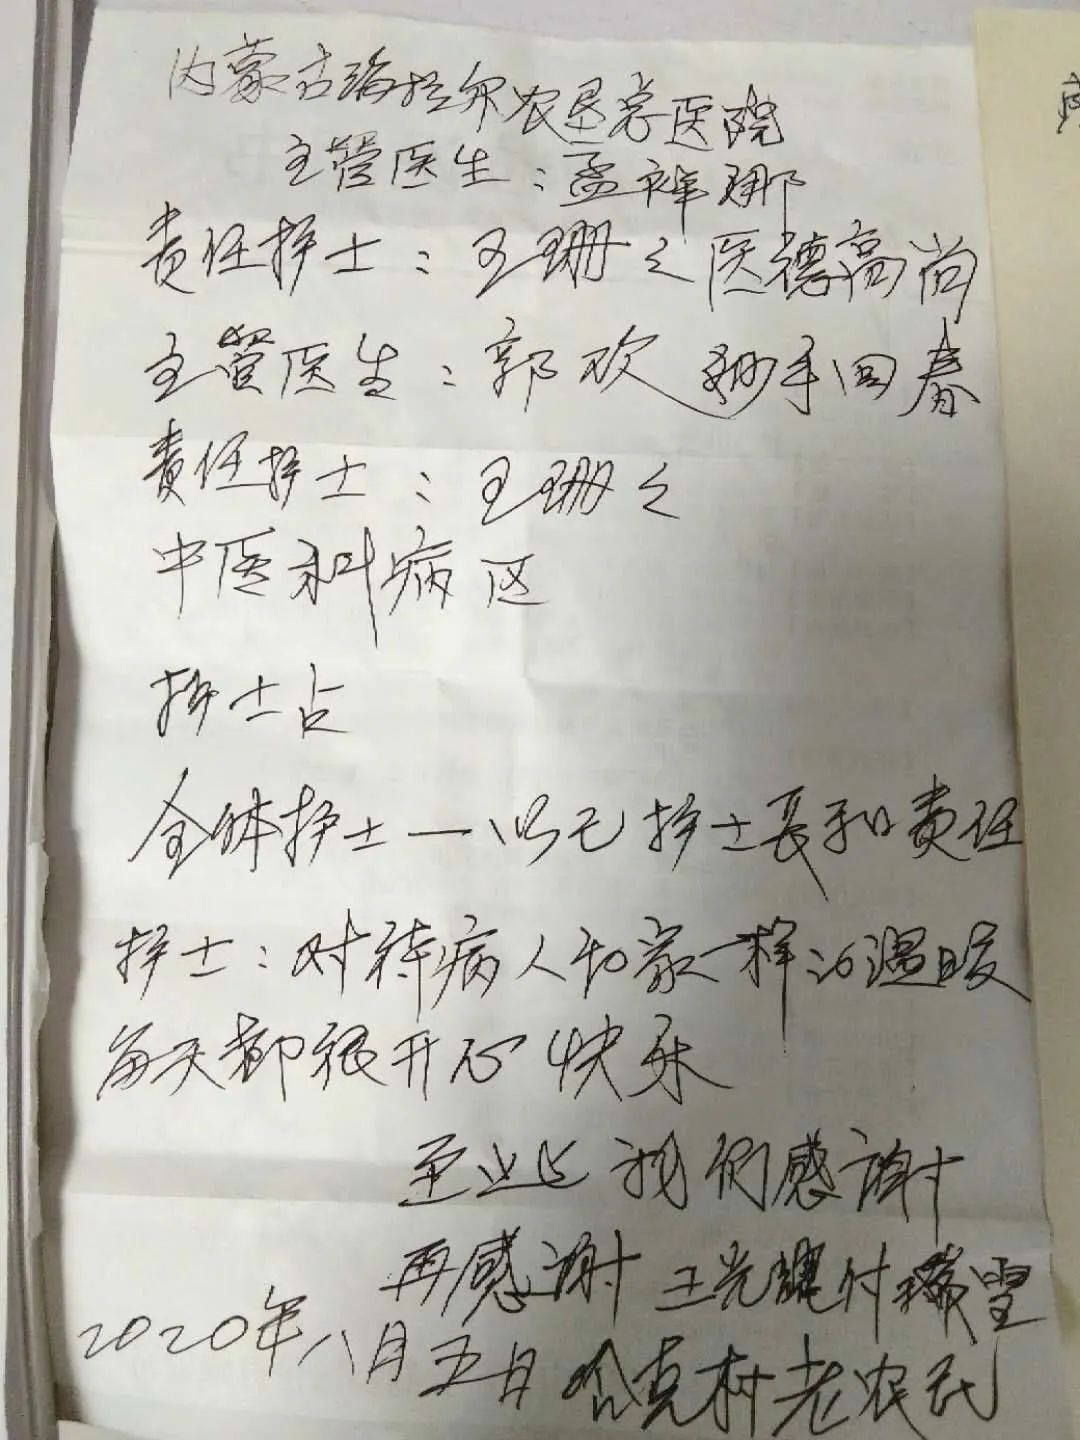 内蒙古海拉尔农垦总医院
主管医生：孟祥娜
责任护士：王珊之医德高尚
主管医生：郭欢 妙手回春
责任护士：王珊之
中医科病区
护士占
全体护士一以已护士长和责任
护士：对待病人和家一样的温暖
每天都很开心快乐
至此 我们感谢
再感谢 王光 付瑞雪
2020年八月五日哈克村老农民